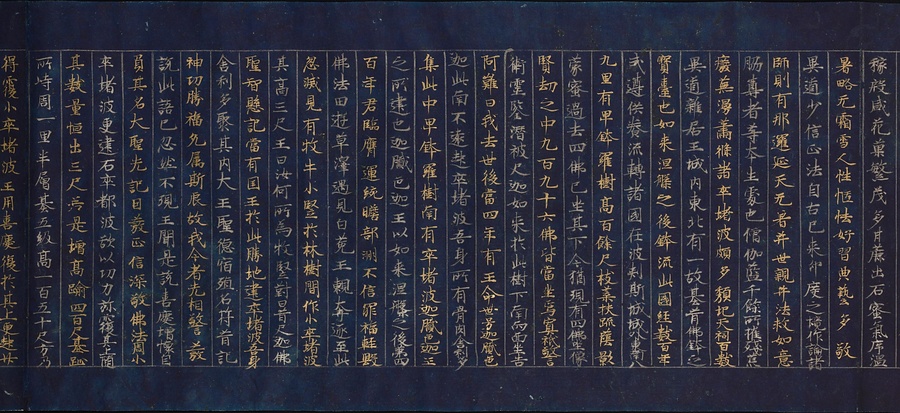 稼殷盛花菓繁茂多甘蔗出石蜜氣序溫
暑略無霜雪人性恇怯好習典藝多敬
異道少信正法自古已來印度之境作論諸
師則有那羅延天無著菩薩世親菩薩法救如意
脇尊者等本生處也僧伽藍千餘所摧殘荒
廢蕪漫蕭條諸窣堵波頗多頹圮天祠百數
異道雜居王城內東北有一故基昔佛鉢之
寶臺也如來涅槃之後鉢流此國經數百年
式遵供養流轉諸國在波剌斯城外東南八
九里有卑鉢羅樹高百餘尺枝葉扶疏蔭影
蒙密過去四佛已坐其下今猶現有四佛坐像
賢劫之中九百九十六佛皆當坐焉冥祇警
衛靈鑒潛被釋迦如來於此樹下南面而坐告
阿難曰我去世後當四百年有王命世号迦膩色
迦此南不遠起窣堵波吾身所有骨肉舍利多
集此中卑鉢羅樹南有窣堵波迦膩色迦王
之所建也迦膩色迦王以如來涅槃之後第四
百年君臨膺運統贍部洲不信罪福輕毀
佛法田遊草澤遇見白兔王親奔逐至此
忽滅見有牧牛小豎於林樹間作小窣堵波
其高三尺王曰汝何所為牧豎對曰昔釋迦佛
聖智懸記當有國王於此勝地建窣堵波吾身
舍利多聚其內大王聖德宿殖名符昔記
神功勝福允屬斯辰故我今者先相警發
說此語已忽然不現王聞是說喜慶增懷自
負其名大聖先記因發正信深敬佛法周小
窣堵波更建石窣都波欲以功力彌覆其上隨
其數量恒出三尺若是增高踰四百尺基趾
所峙周一里半層基五級高一百五十尺方乃
得覆小窣堵波王用喜慶復於其上更起廿